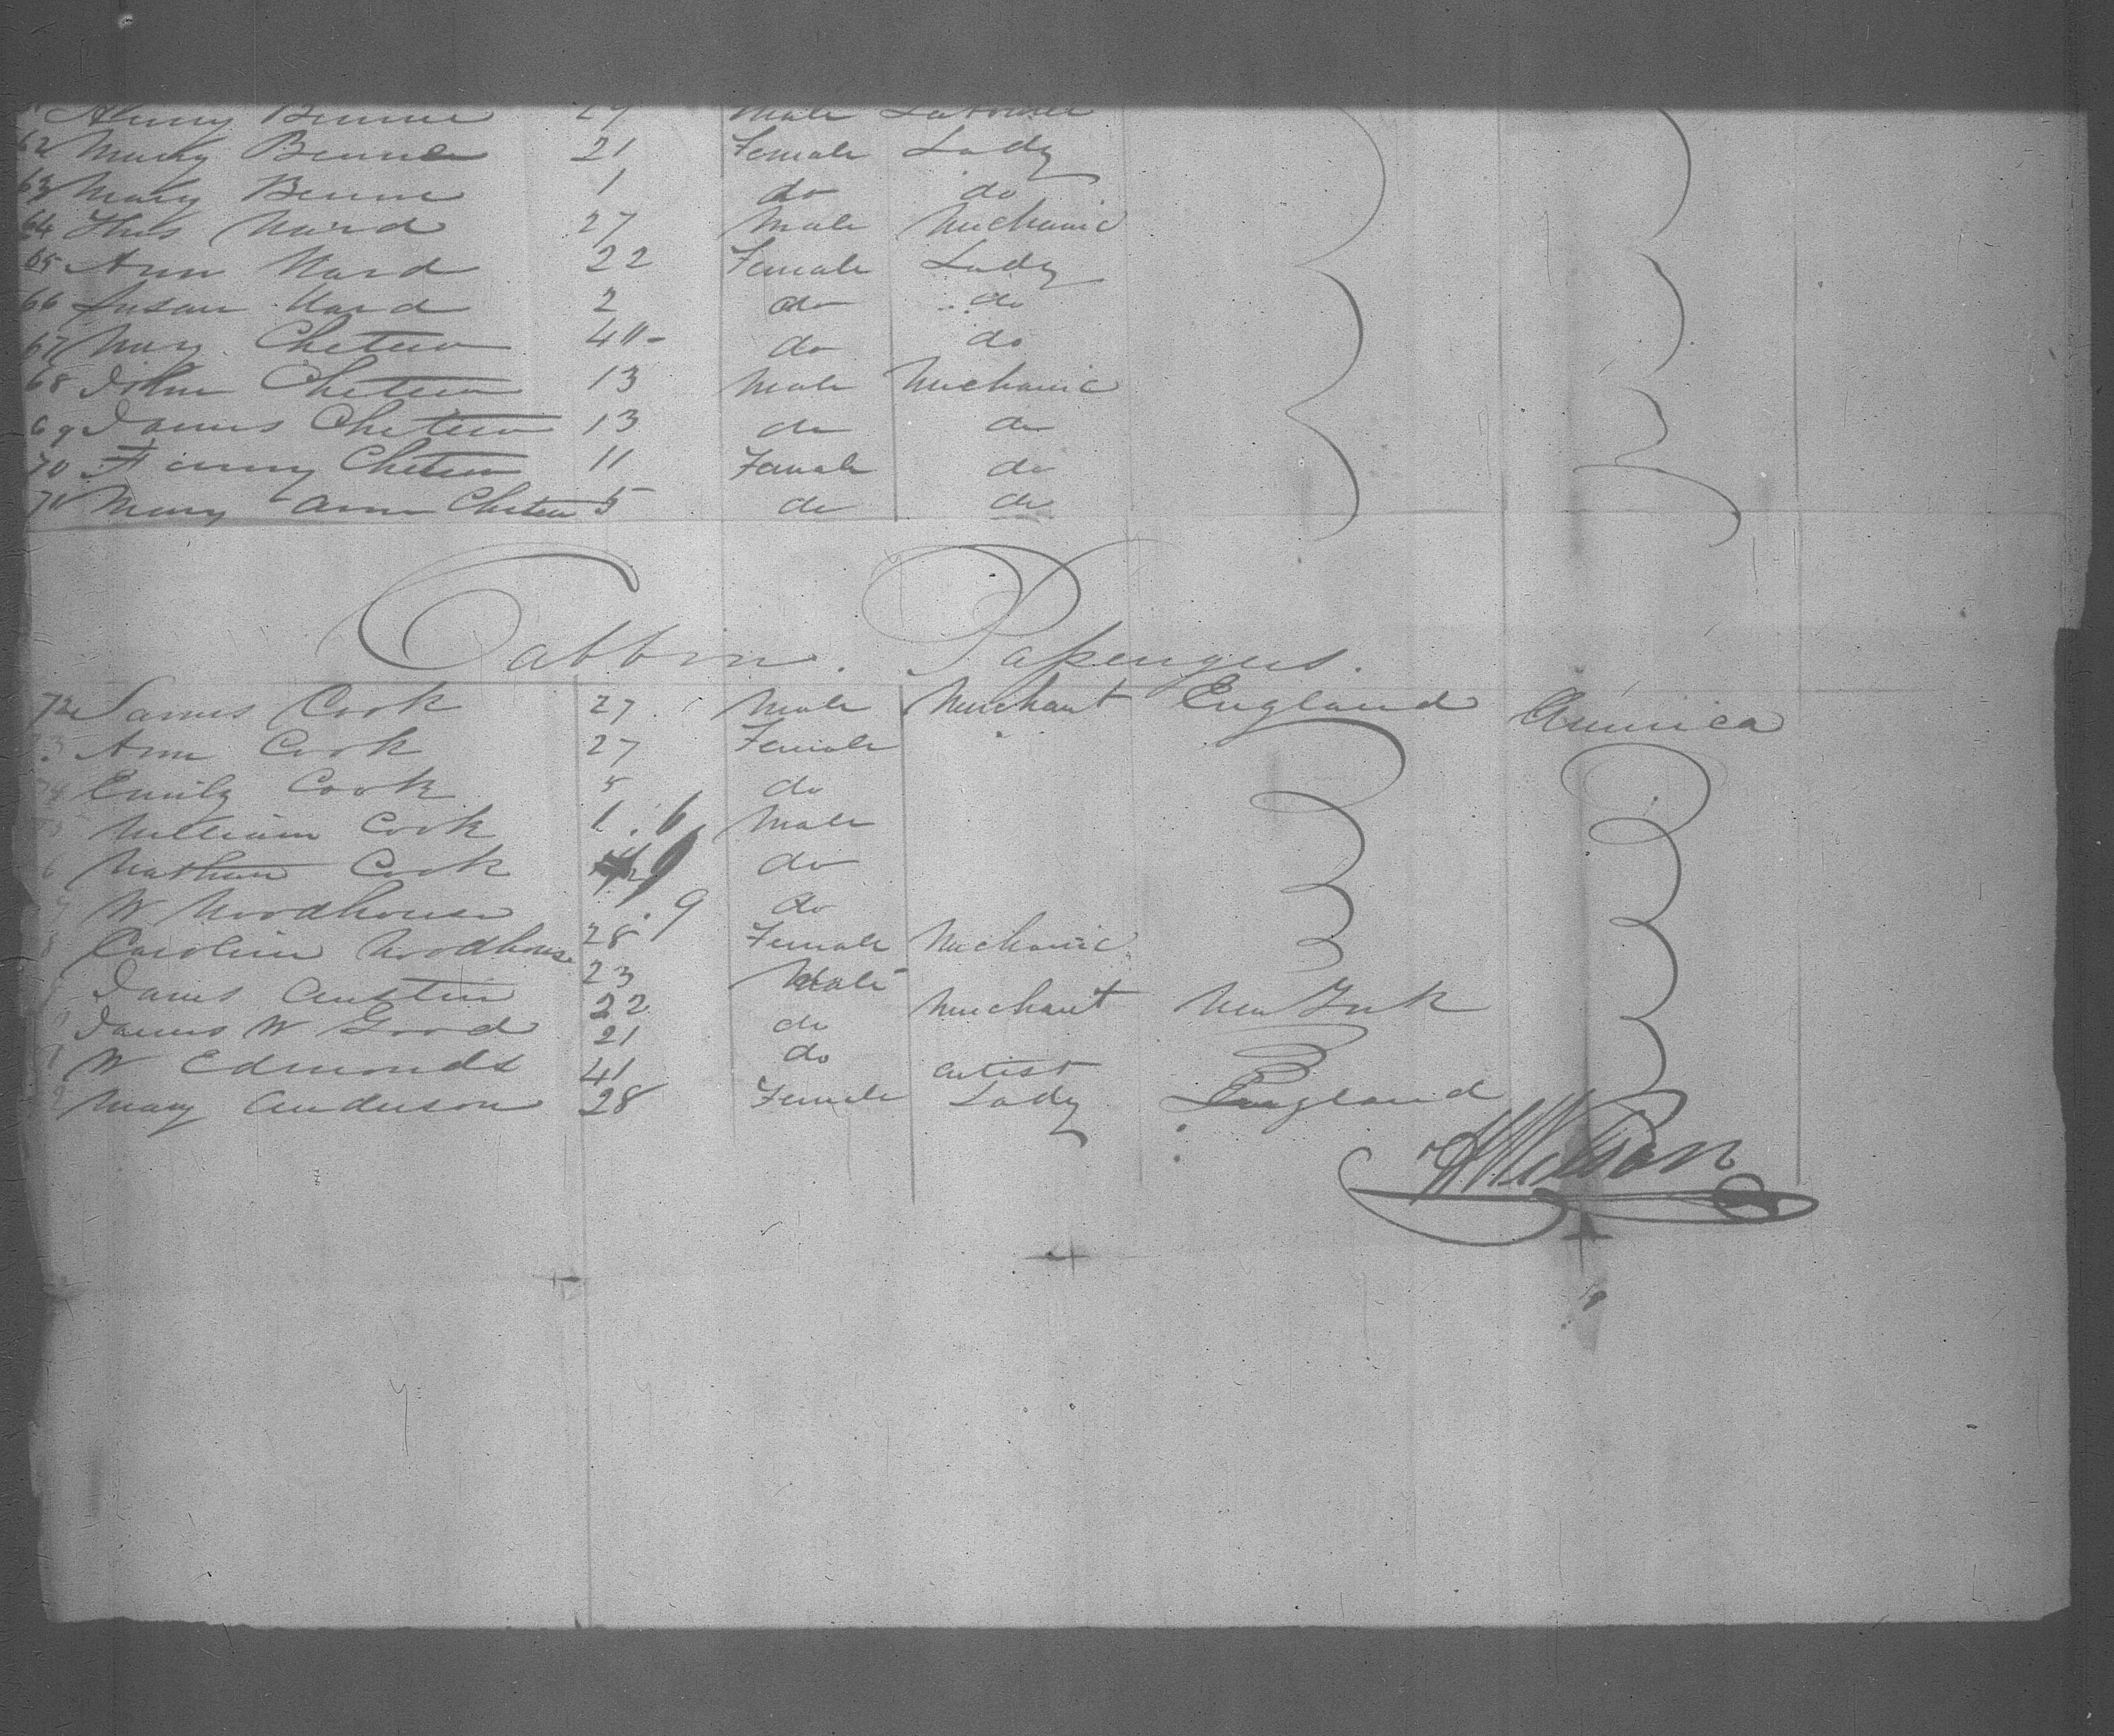 Henry Benne 29 Male Labourer
62 Mary Benne 21 Female Lady
63 Mary Benne 1 do do
64 Thos Ward 27 Male Mechanic
65 Ann Ward 22 Female Lady
66 Susan Ward 2 do do
67 Mary Chetew 40 do do
68 John Chetew 13 Male Mechanic
69 James Chetew 13 do do
70 Fanny Chetew 11 Female do
71 Mary Ann Chetew 5 do do
Cabbin. Passengers.
72 James Cook 27 Male Merchant England America
73 Ann Cook 27 Female
74 Emily Cook 5 do
William Cook 1.6 Male
Nathan Cook do
W Woodhouse .9 do
Carolin Woodhouse 28 Female Mechanic
James Austin 23 Male
James W Good 22 do Merchant New York
W Edmonds 21 do
41 Artist
Mary Anderson 28 Female Lady England